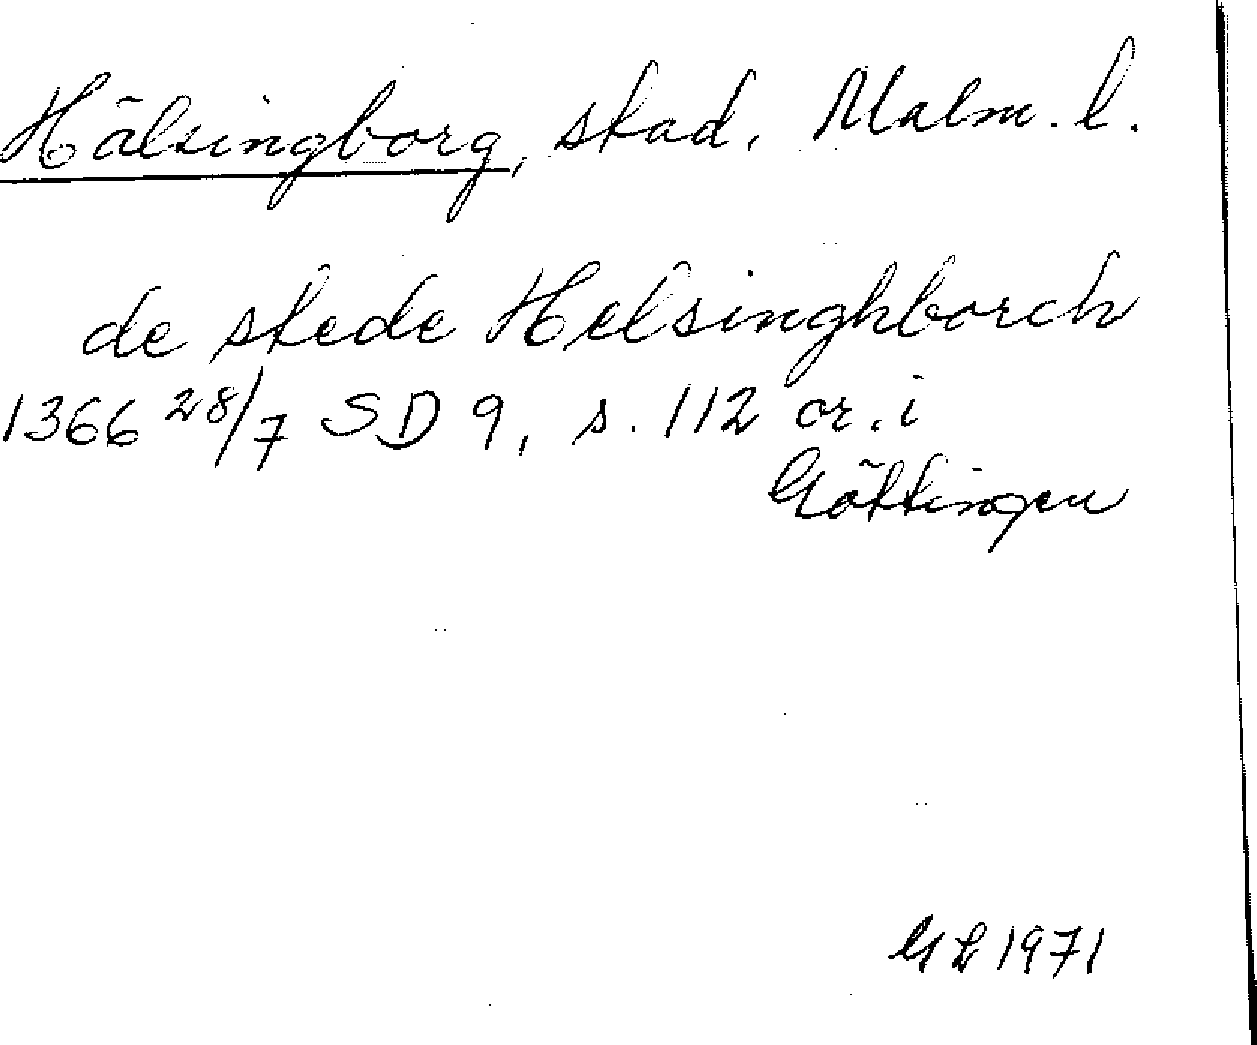 Hälsingborg, stad, Malm. l.
de stede Helsinghborch
1366 28/7 SD 9, s. 112 or. i
Göttingen
GL 1971